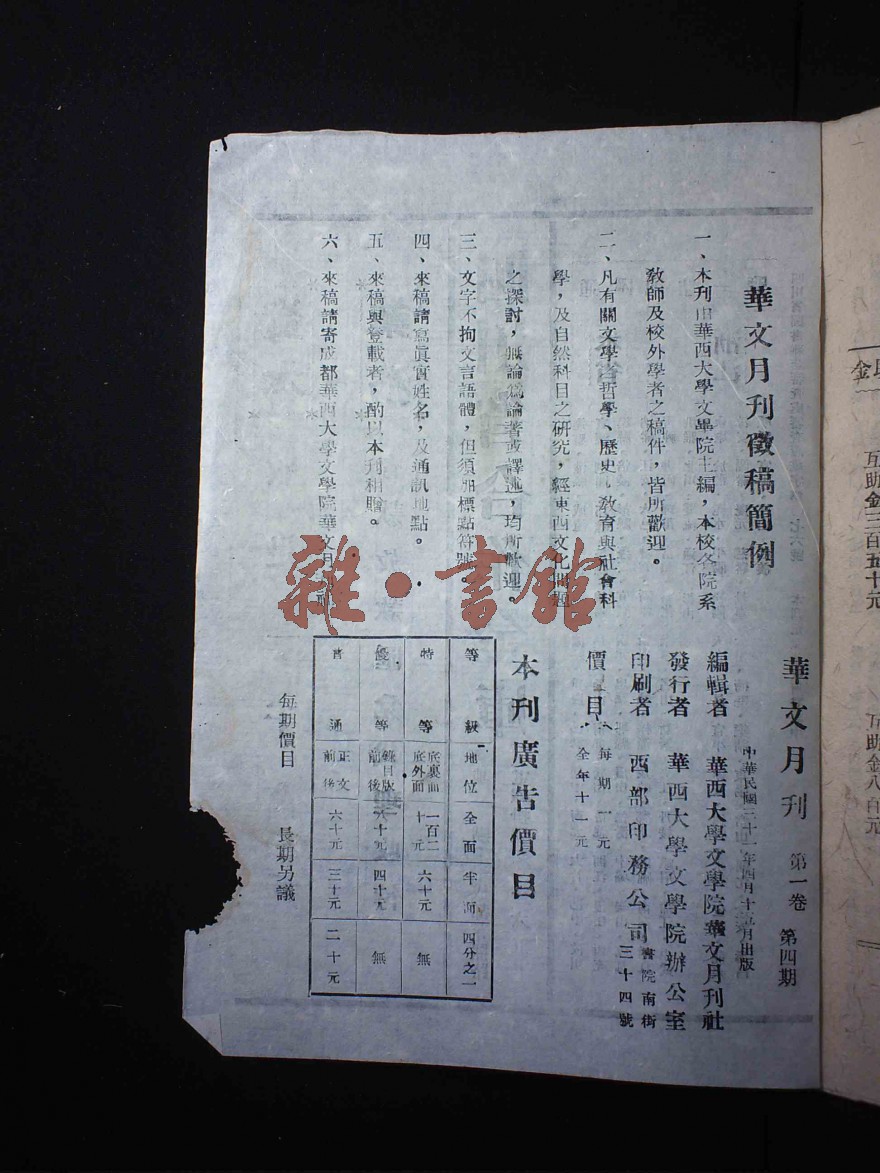 華文月刊徵稿簡例
一、本刊由華西大學文學院主編，本校各院系
教師及校外學者之稿件，皆所歡迎。
二、凡有關文學、哲學、歷史、教育與社會科
學，及自然科目之研究，經東西文化問題
之探討，無論為論著或譯述，均所歡迎。
三、文字不拘文言語體，但須加標點符號
四、來稿請寫眞實姓名，及通訊地點。
五、來稿與登載者，酌以本刊相贈。
六、來稿請寄成都華西大學文學院華文月
華文月刊 第一卷 第四期
中華民國三十一年四月十五月出版
編輯者 華西大學文學院華文月刊社
發行者 華西大學文學院辦公室
印刷者 西部印務公司 書院南街三十四號
價目 每期一元
全年十一元
本刊廣告價目
等級 地位 全面 半面 四分之一
特等 底裏面底外面 一百二十元 六十元 無
優等 錄目版前後 八十元 四十元 無
普通 正文前後 六十元 三十元 二十元
每期價目 長期另議
雜·書館
互助金三百五十元
互助金八百元